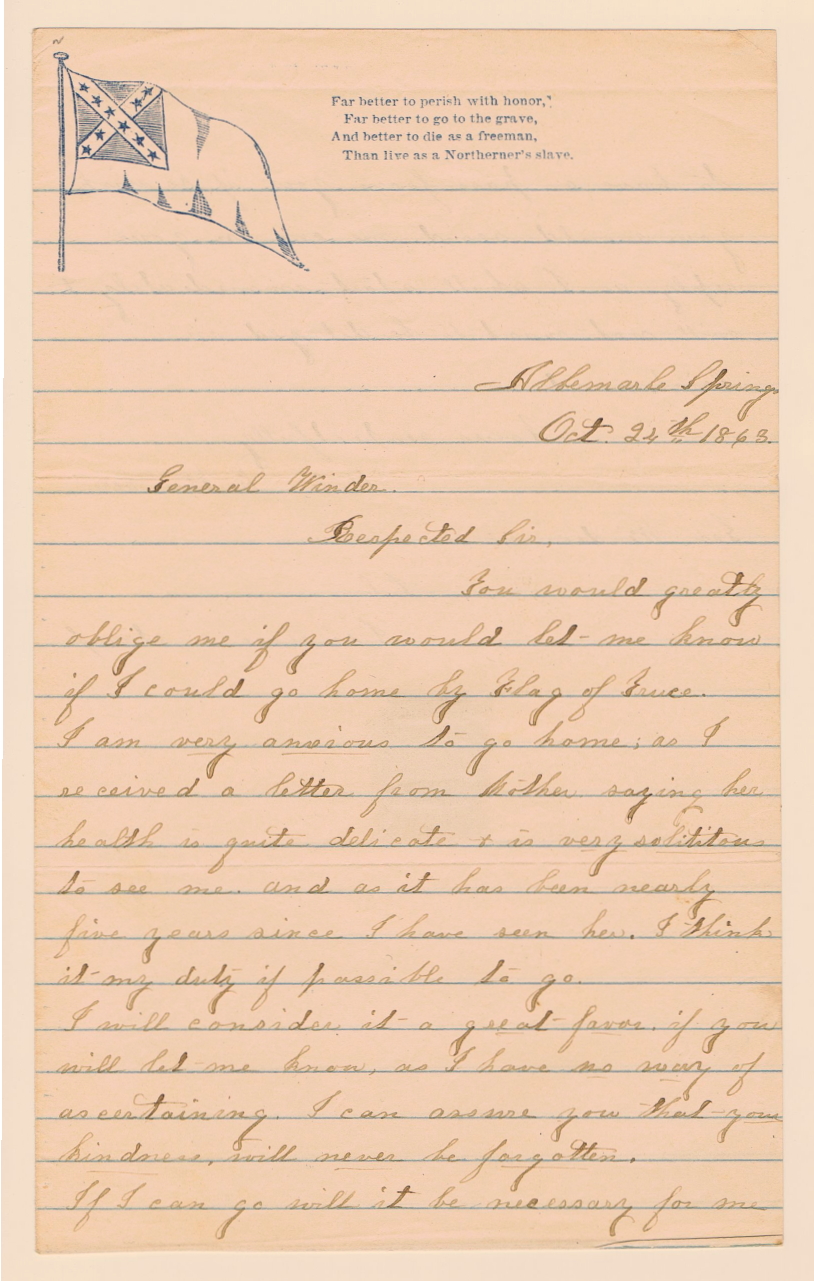 Far better to perish with honor,
Far better to go to the grave,
And better to die as a freeman,
Than live as a Northerner's slave.
Albemarle Springs
Oct. 24th 1863.
General Winder.
Respected Sir,
You would greatly
oblige me if you would let me know
if I could go home by Flag of Truce.
I am very anxious to go home; as I
received a letter from Mother saying her
health is quite delicate & is very solititous
to see me. and as it has been nearly
five years since I have seen her. I think
it my duty if possible to go.
I will consider it a great favor. if you
will let me know, as I have no way of
ascertaining. I can assure you that your
kindness, will never be forgotten.
If I can go will it be necessary for me